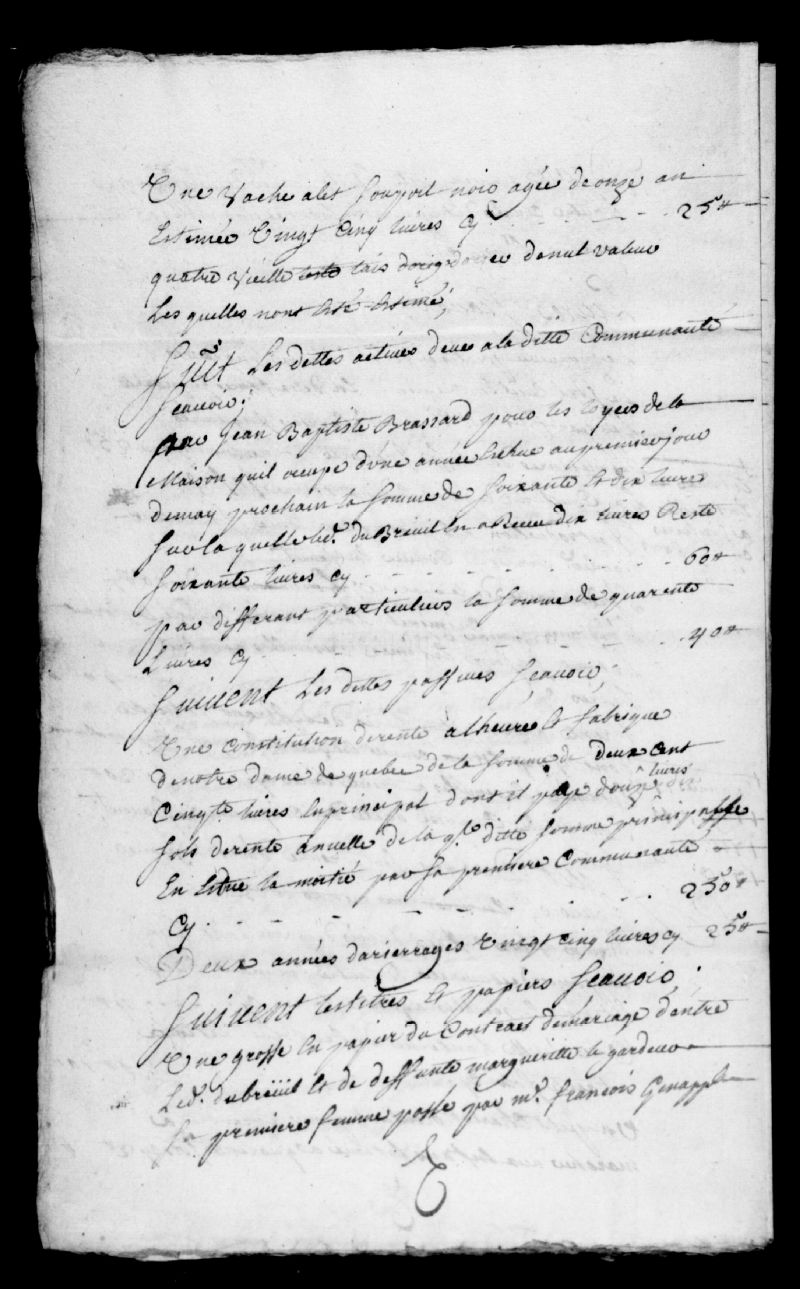 Une Vache a let Souspoil noir agée de onze an
Estimée Vingt Cinq livres Cy 25#
quatre Vieille d'oreiller de nul valeur
Les quelles nont Esté Estimé,
Suit Les dettes actives deues a la ditte Communauté
Scavoir;
par Jean Baptiste Brassard pour les loyers de la
Maison quil ocupe dune année Echue au premier jour
demay prochain la Somme de Soixante Et dix livres
Sur la quelle led. duBreüil En a Receu dix livres Reste
Soixante livres Cy 60#
par differant particuliers la Somme de quarente
Livres Cy 40#
Suivent Les dettes passives Scavoir;
Une Constitution derente a Leuvre Et fabrique
denotre dame de quebec de la Somme de deux Cent
Cinqte livres En principal dont il paye douze livres dix
sols derente annuelle de la qle ditte Somme principalle
En Est due la moitié par Sa premiere Communauté
Cy 250#
Deux années darierrages Vingt Cinq livres Cy 25#
Suivent les titres Et papiers Scavoir;
Une grosse En papier du Contract de mariage d'entre
Led. dubreüil Et de deffunte margueritte le gardeur
Sa premiere femme passé par me. françois Genapple